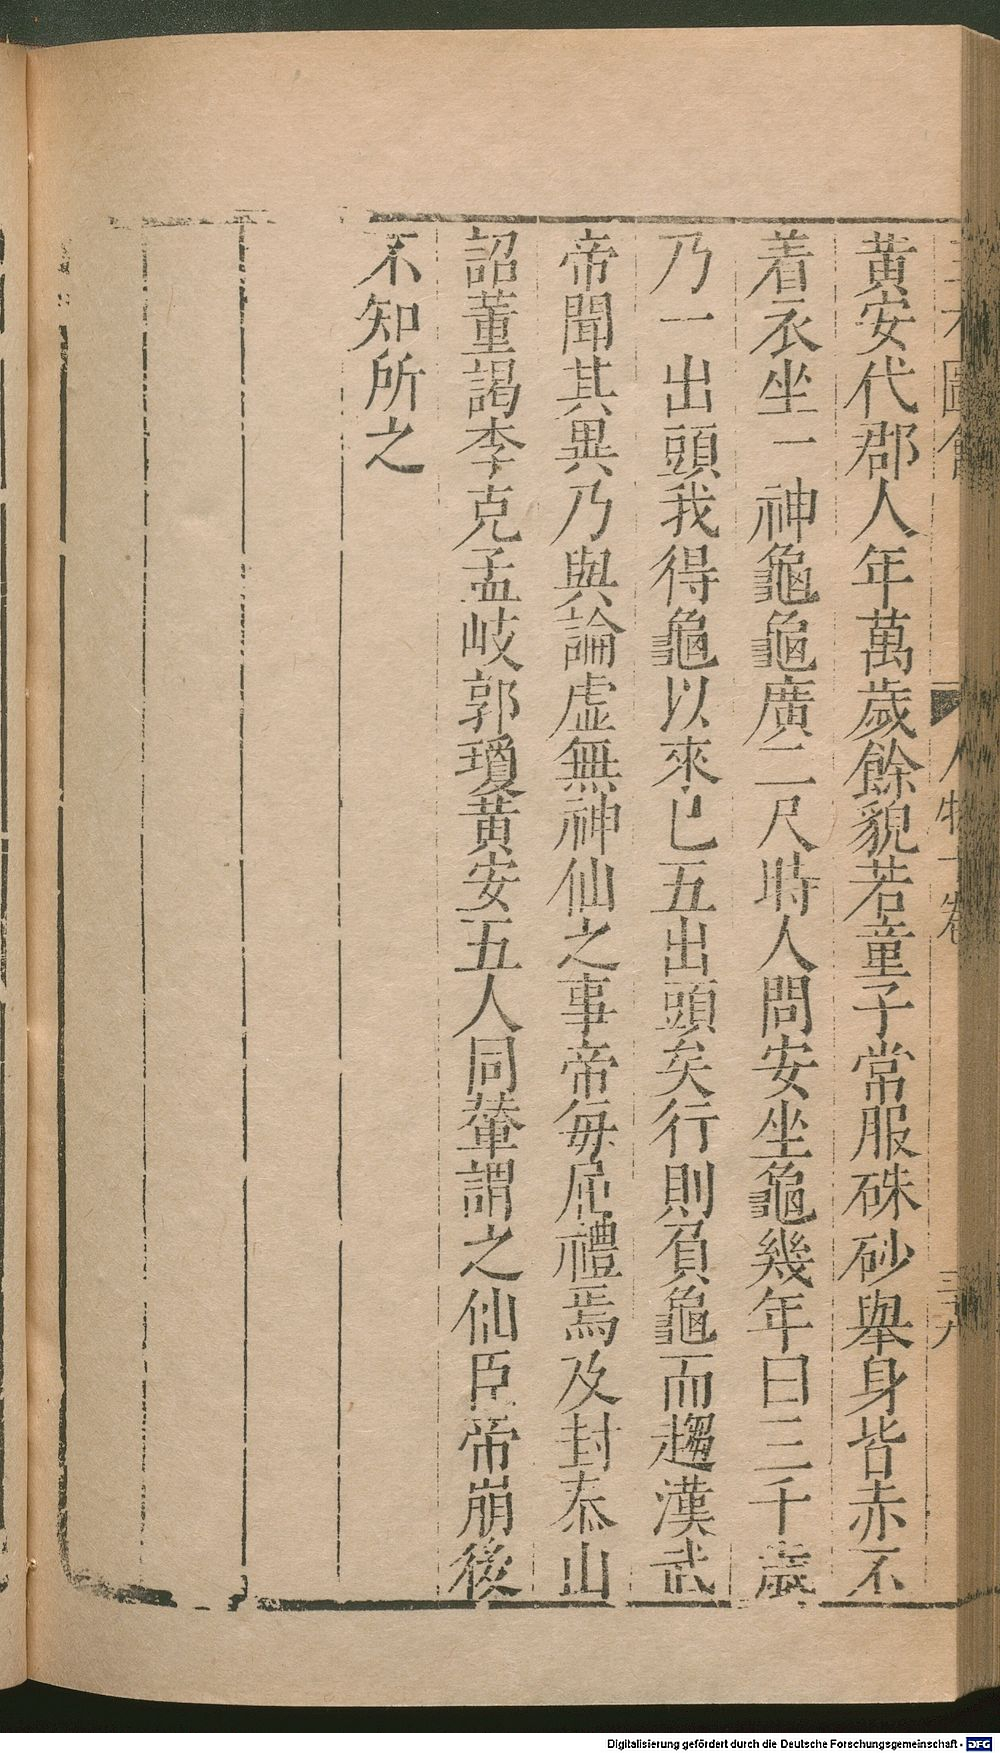 三才圖會 人物十卷 三十八
黃安代郡人年萬歲餘貌若童子常服硃砂舉身皆赤不
着衣坐一神龜龜廣二尺時人問安坐龜幾年曰三千歲
乃一出頭我得龜以來已五出頭矣行則負龜而趨漢武
帝聞其異乃與論虛無神仙之事帝每屈禮焉及封泰山
詔董謁李克孟岐郭瓊黃安五人同輦謂之仙臣帝崩後
不知所之
Digitalisierung gefördert durch die Deutsche Forschungsgemeinschaft - DFG